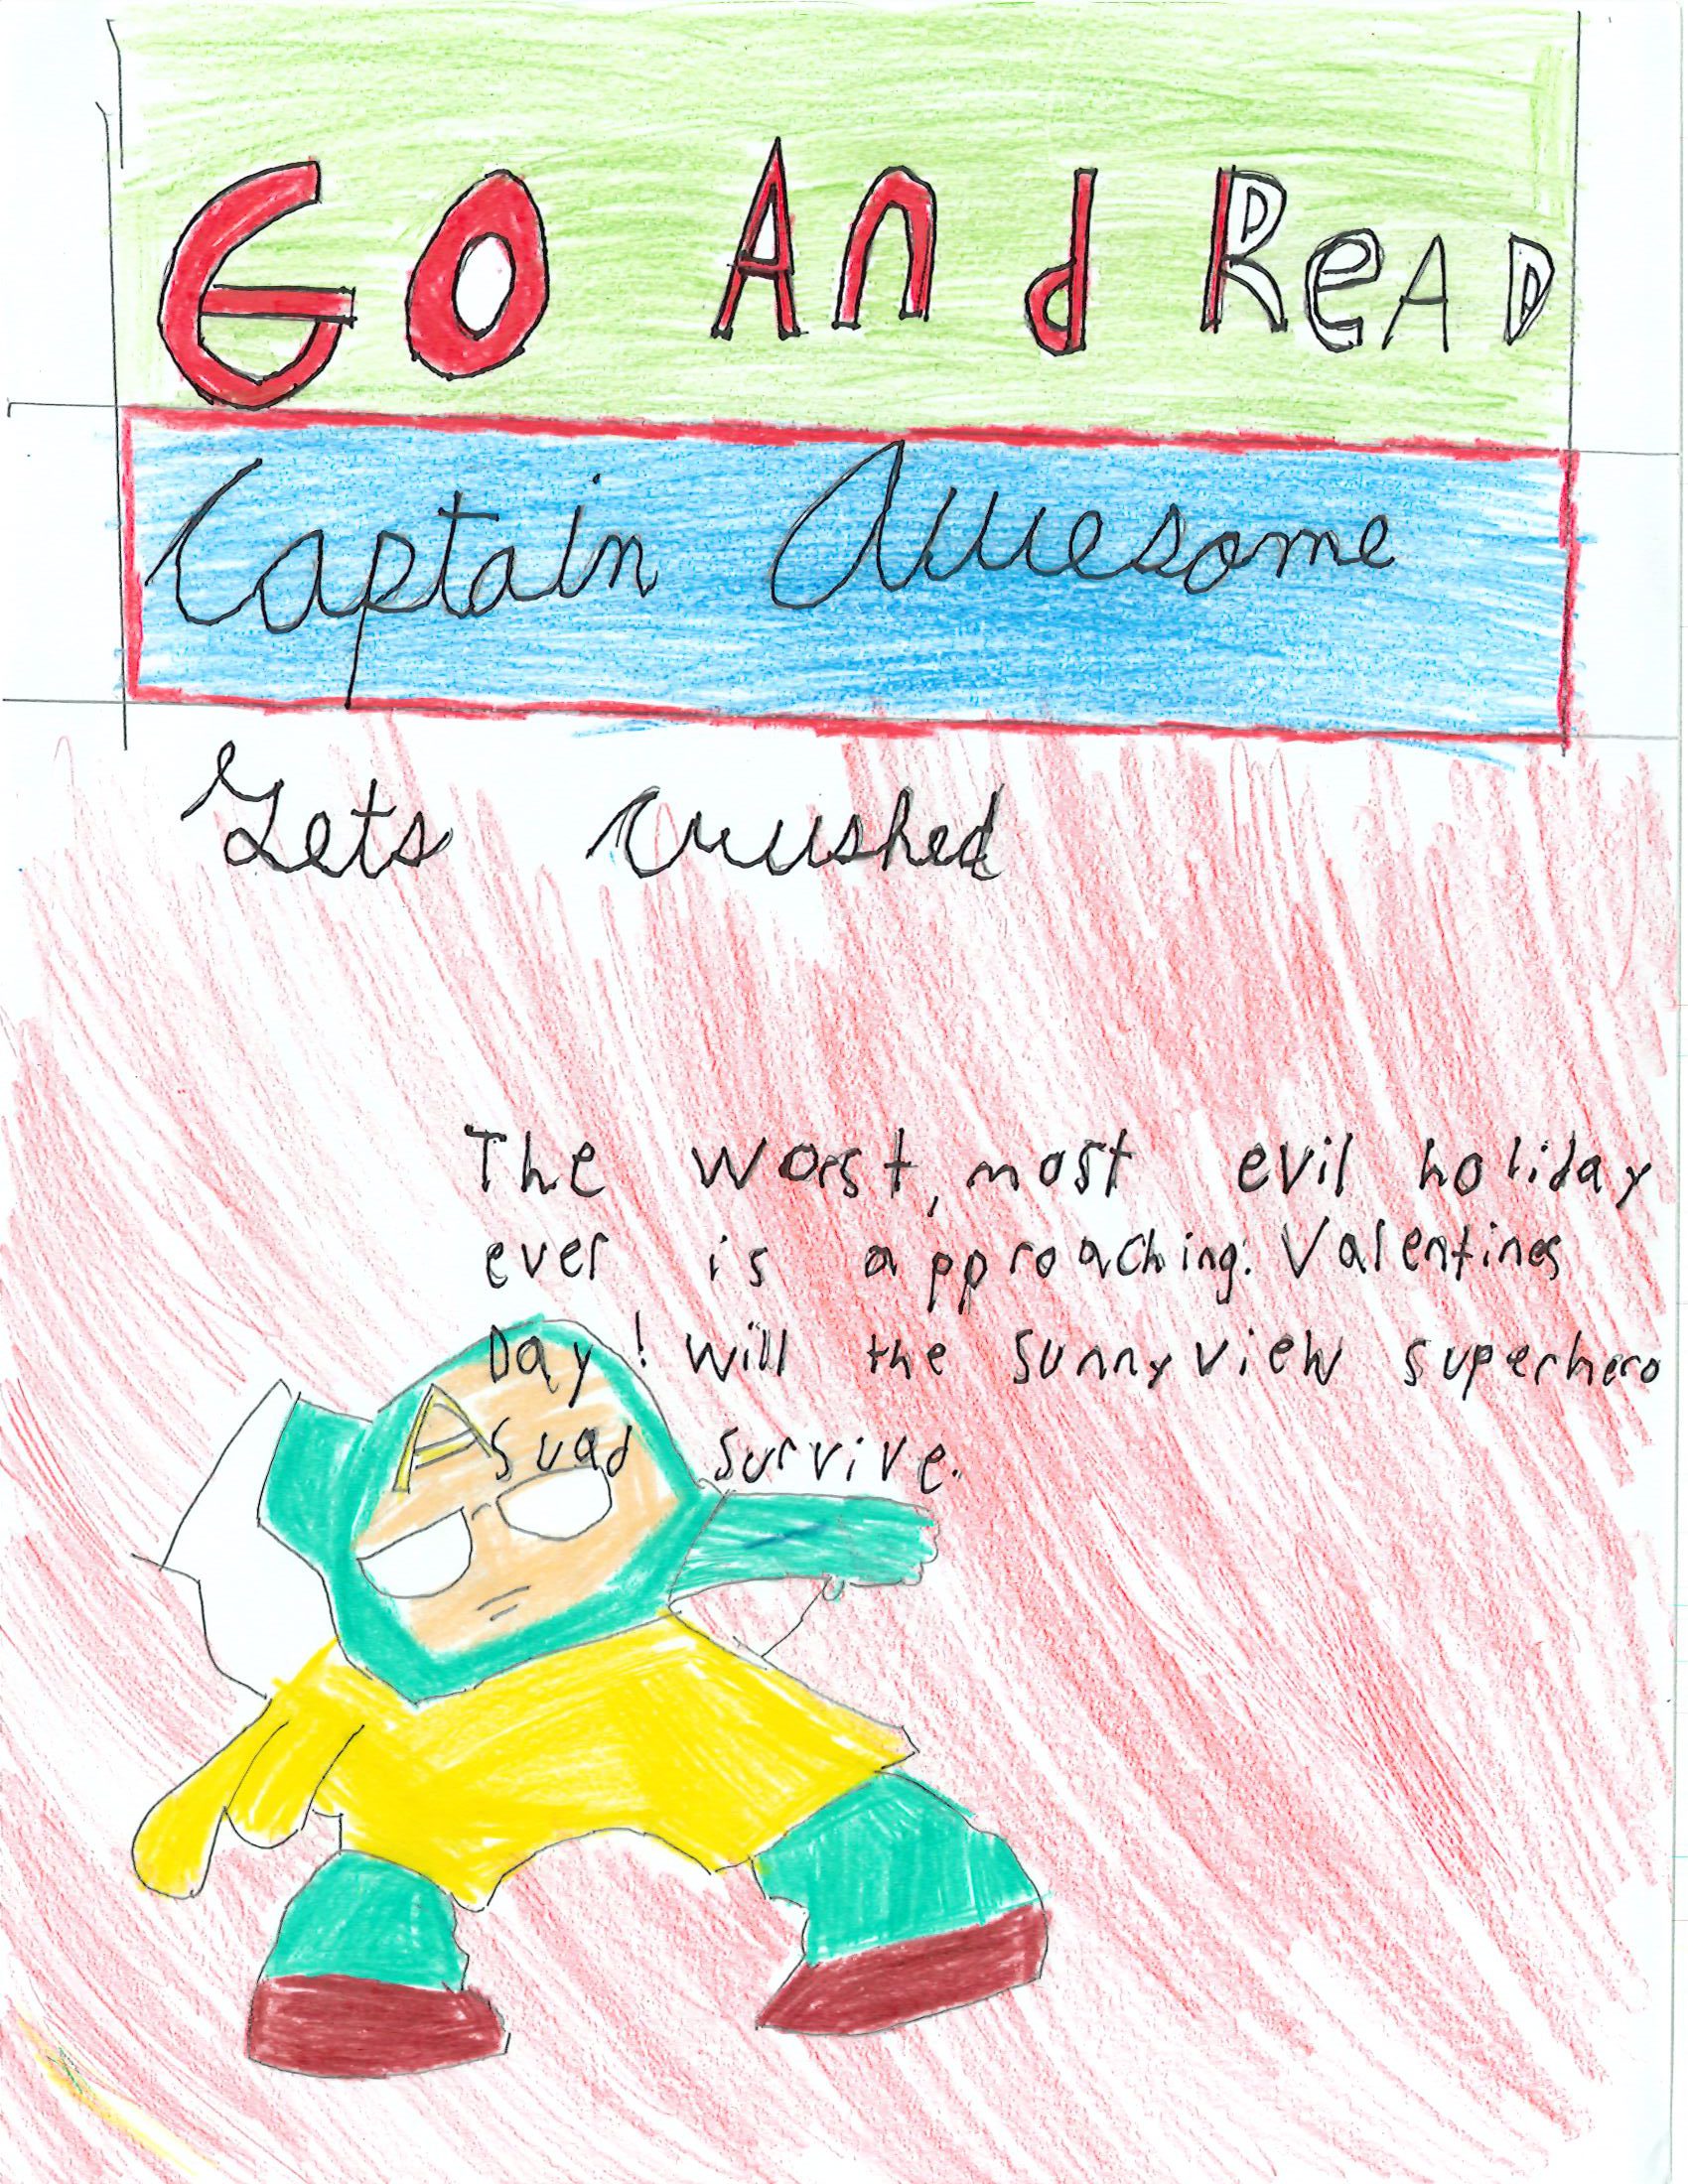 GO And ReAD
Captain Awesome
Gets crushed
The worst, most evil holiday
ever is approaching: Valentines
Day! will the sunnyview superhero
A
suad survive.